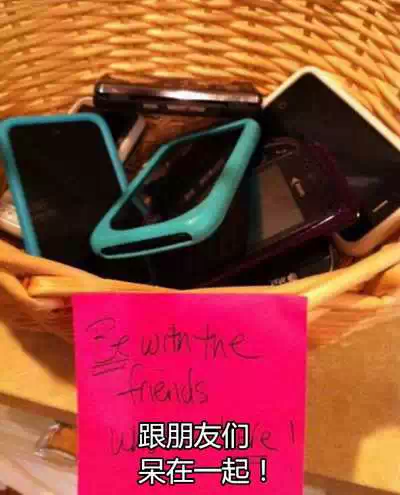 Be with the
friends
跟朋友们
呆在一起！